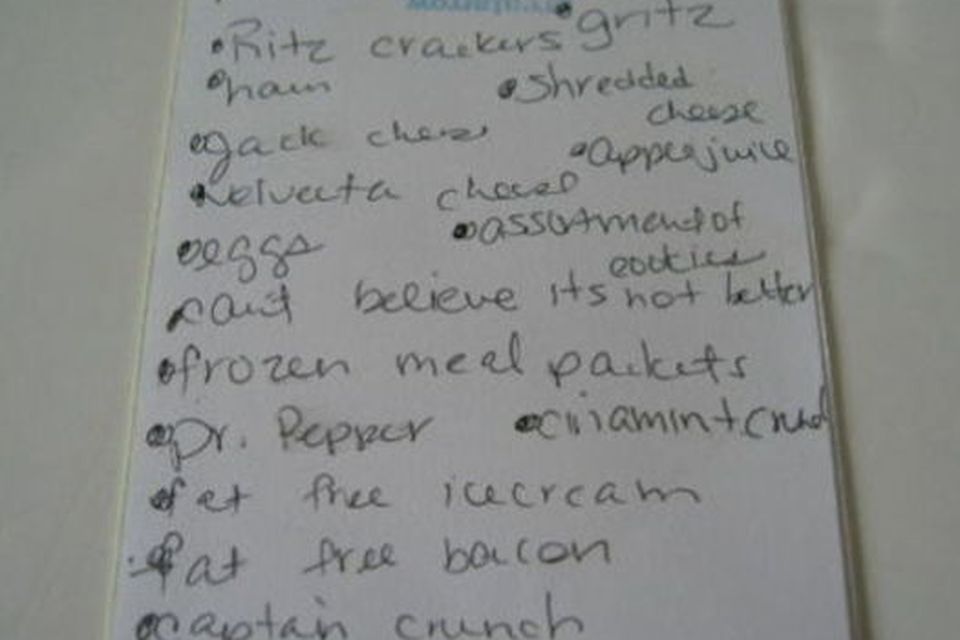 gritz
Ritz crackers
ham
shredded
cheese
Jack chees
apple juice
Velveeta cheese
assortment of
cookies
eggs
can't believe its not better
frozen meal packets
Dr. Pepper
cinamint crunch
fat free icecream
fat free bacon
captain crunch